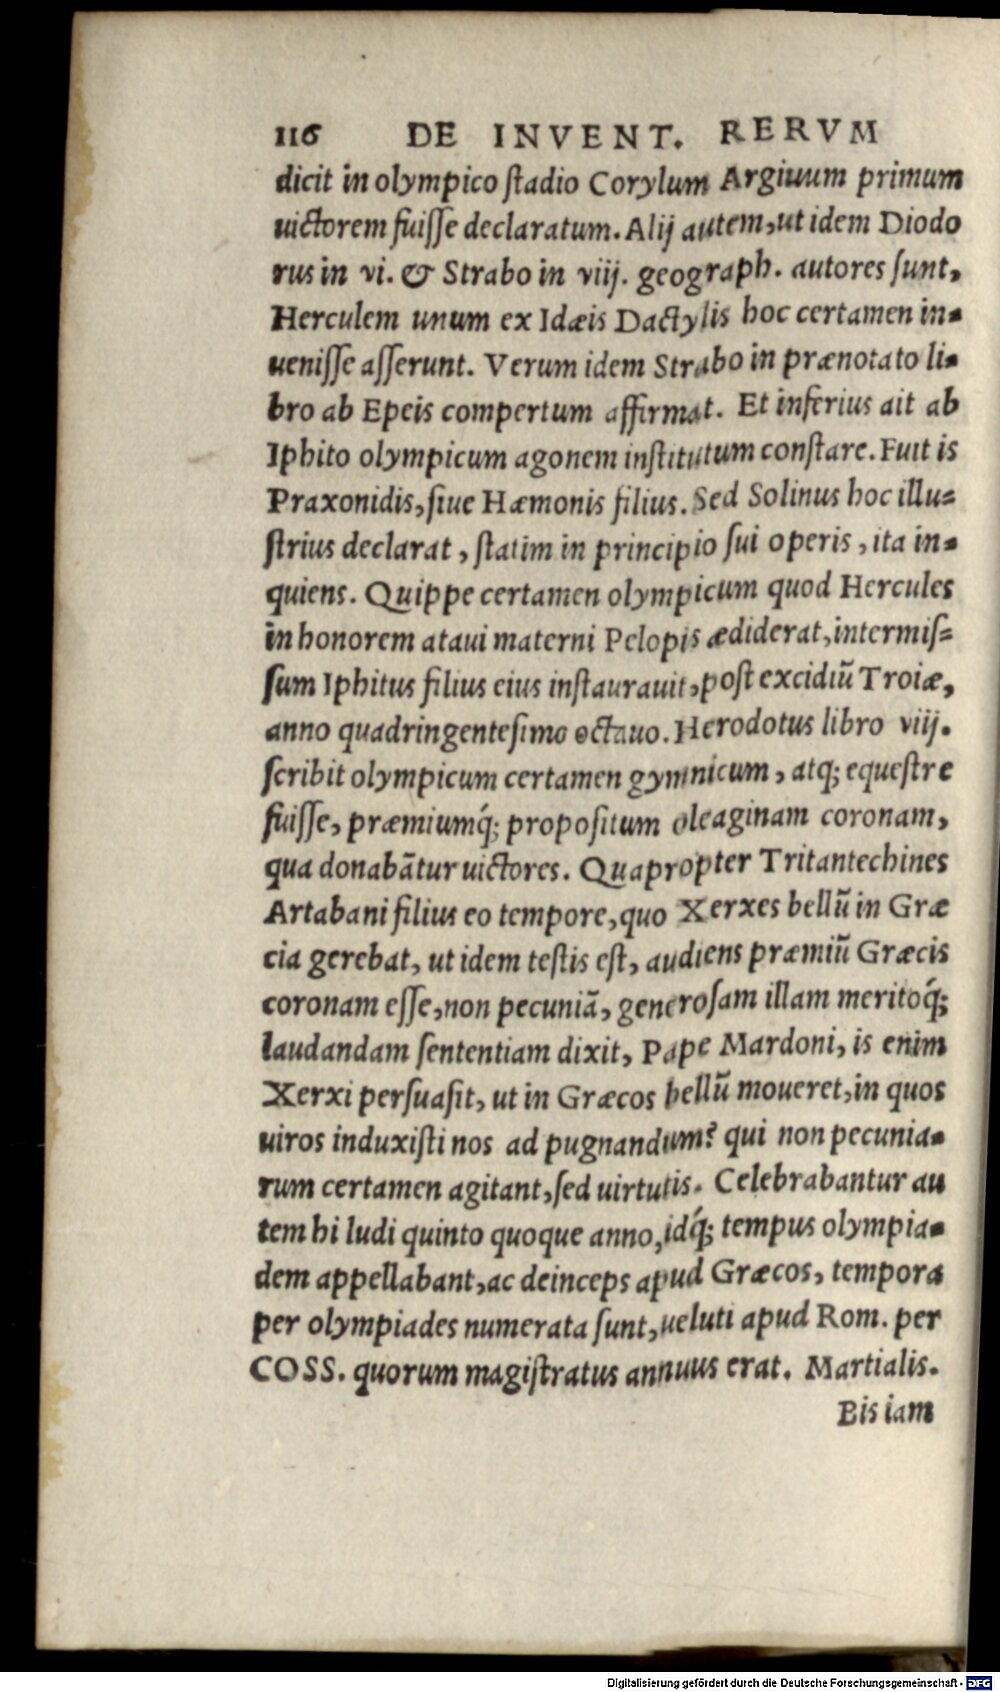 116 DE INVENT. RERVM
dicit in olympico ſtadio Corylum Argiuum primum
uictorem fuiſſe declaratum. Alij autem, ut idem Diodo
rus in vi. & Strabo in viij. geograph. autores ſunt,
Herculem unum ex Idæis Dactylis hoc certamen in-
ueniſſe aſſerunt. Verum idem Strabo in prænotato li-
bro ab Epeis compertum affirmat. Et inferius ait ab
Iphito olympicum agonem inſtitutum conſtare. Fuit is
Praxonidis, ſiue Hæmonis filius. Sed Solinus hoc illu-
ſtrius declarat, ſtatim in principio ſui operis, ita in-
quiens. Quippe certamen olympicum quod Hercules
in honorem ataui materni Pelopis ædiderat, intermiſ-
ſum Iphitus filius eius inſtaurauit, poſt excidiũ Troiæ,
anno quadringenteſimo octauo. Herodotus libro viij.
ſcribit olympicum certamen gymnicum, atq; equeſtre
fuiſſe, præmiumq́; propoſitum oleaginam coronam,
qua donabãtur uictores. Quapropter Tritantechines
Artabani filius eo tempore, quo Xerxes bellũ in Græ
cia gerebat, ut idem teſtis eſt, audiens præmiũ Græcis
coronam eſſe, non pecuniã, generoſam illam meritoq́;
laudandam ſententiam dixit, Pape Mardoni, is enim
Xerxi perſuaſit, ut in Græcos bellũ moueret, in quos
uiros induxiſti nos ad pugnandum? qui non pecunia-
rum certamen agitant, ſed uirtutis. Celebrabantur au
tem hi ludi quinto quoque anno, idq́; tempus olympia-
dem appellabant, ac deinceps apud Græcos, tempora
per olympiades numerata ſunt, ueluti apud Rom. per
COSS. quorum magiſtratus annuus erat. Martialis.
Bis iam
Digitalisierung gefördert durch die Deutsche Forschungsgemeinschaft - DFG